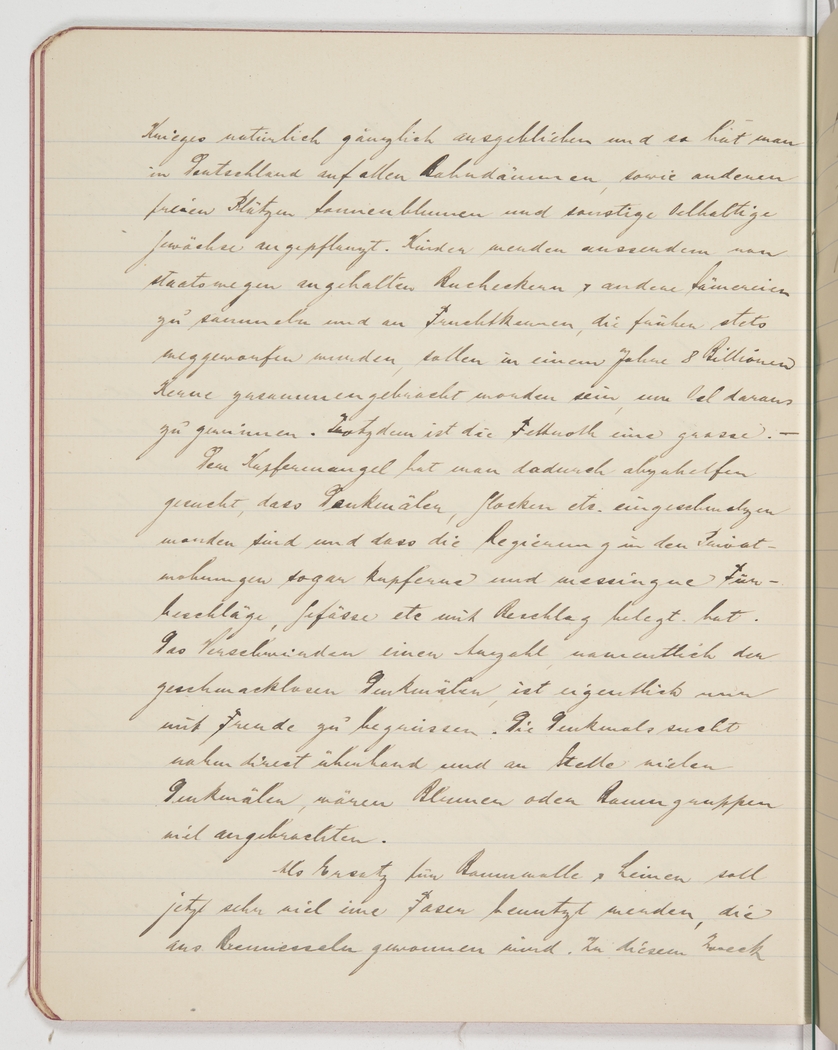 Krieges natürlich gänzlich ausgeblieben und so hat man
in Deutschland auf allen Bahndämmen, sowie anderen
freien Plätzen Sonnenblumen und sonstige ölhaltige
Gewächse angepflanzt. Kinder werden ausserdem von
staatswegen angehalten Bucheckern & andere Sämereien
zu sammeln und an Fruchtkernen, die früher stets
weggeworfen wurden, sollen in einem Jahre 8 Billionen
Kerne zusammengebracht worden sein, um Oel daraus
zu gewinnen. Trotzdem ist die Fettnoth eine grosse. —
Dem Kupfermangel hat man dadurch abzuhelfen
gesucht, dass Denkmäler, Glocken etc. eingeschmolzen
worden sind und dass die Regierung in den Privat-
wohnungen sogar kupferne und messingne Tür-
beschläge, Gefässe etc mit Beschlag belegt hat.
Das Verschwinden einer Anzahl, namentlich der
geschmacklosen Denkmäler, ist eigentlich nur
mit Freude zu begrüssen. Die Denkmalssucht
nahm direct überhand und an Stelle vieler
Denkmäler, wären Blumen oder Baumgruppen
viel angebrachter.
Als Ersatz für Baumwolle & Leinen soll
jetzt sehr viel eine Faser benutzt werden, die
aus Brennesseln gewonnen wird. Zu diesem Zweck